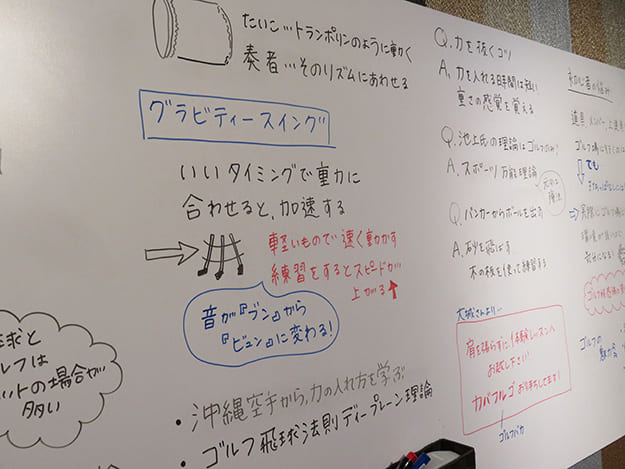 たいこ…トランポリンのように動く
奏者…そのリズムにあわせる
グラビティースイング
いいタイミングで重力に
合わせると、加速する
軽いもので速く動かす
練習をするとスピードが
上がる↑
音が『ブン』から
『ビュン』に変わる!
球と
ルフは
ットの場合が
多い
・沖縄空手から、力の入れ方を学ぶ
・ゴルフ飛球法則ディープレーン理論
Q.力を抜くコツ
A.力を入れる時間は短い
重さの感覚を覚える
Q.池上氏の理論はゴルフだけ?
A.スポーツ万能理論
Q.バンカーからボールを出す
A.砂を飛ばす
木の板を使って練習する
大城さんより…
肩を張らずに体験レッスンへ
お越し下さい!
カバフルゴお待ちしてます!
ゴルフバカ
初心者の悩み
道具、メンバー、上達
でも
ゴルフの
魅力